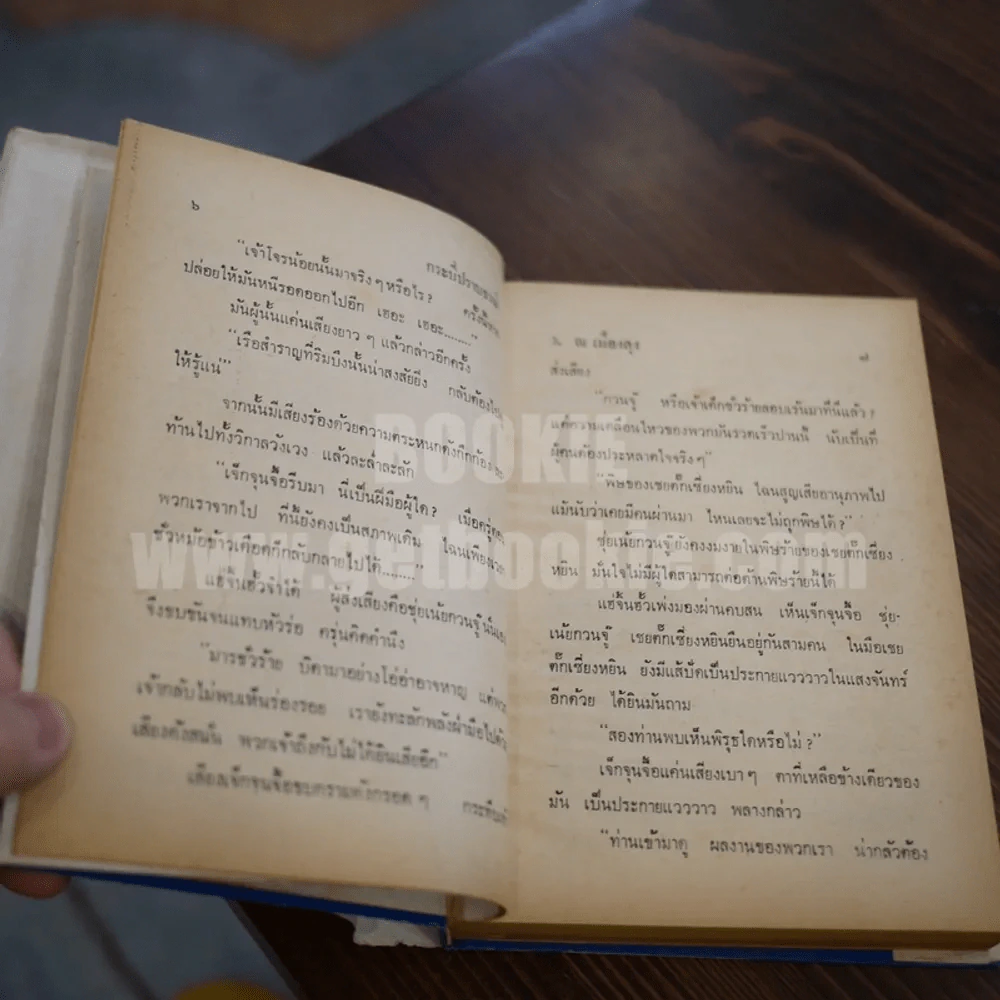 ๖
กระบี่ปราบ
"เจ้าโจรน้อยนั้นมาจริง ๆ หรือไร?
ปล่อยให้มันหนีรอดออกไปอีก เฮอะ เฮอะ........"
มันผู้นั้นแค่นเสียงยาว ๆ แล้วกล่าวอีกครั้ง
"เรือสำราญที่ริมบึงนั้นน่าสงสัยยิ่ง กลับต้อง
ให้รู้แน่"
จากนั้นมีเสียงร้องด้วยความตระหนกดังกึกก้อง
ท้านไปทั้งวิกาลวังเวง แล้วละล่ำละลัก
"เจ็กจุนจื้อรีบมา นี่เป็นฝีมือผู้ใด? เมื่อครู่
พวกเราจากไป ที่นี้ยังคงเป็นสภาพเดิม ไฉนเพียง
ชั่วหม้อข้าวเดือดก็กลับกลายไปได้........"
แฮ่จิ้นฮั้วจำได้ ผู้ส่งเสียงคือซุ่ยเน้ยกวนจู๊นั่นเอง
จึงขบขันจนแทบหัวร่อ ครุ่นคิดคำนึง
"มารชั่วร้าย บิดามาอย่างโอ่อ่าอาจหาญ แต่พวก
เจ้ากลับไม่พบเห็นร่องรอย เรายังทะลักพลังฝ่ามือไปด้วย
เสียงดังสนั่น พวกเจ้าถึงกับไม่ได้ยินเสียอีก"
เสียงเจ็กจุนจื้อขบกรามดังกรอด ๆ
BOOKIE
www.getbookie.com
๖. ณ เมืองสุง ๗
สั่งเสียง
"กวนจู๊ หรือเจ้าเด็กชั่วร้ายลอบเร้นมาที่นี่แล้ว?
แต่ความเคลื่อนไหวของพวกมันรวดเร็วปานนี้ นับเป็นที่
ผู้คนต้องประหลาดใจจริง ๆ"
"พิษของเชยตั๊กเซี่ยงหยิน ไฉนสูญเสียอานุภาพไป
แม้นับว่าเคยมีคนผ่านมา ไหนเลยจะไม่ถูกพิษได้?"
ซุ่ยเน้ยกวนจู๊ยังคงงมงายในพิษร้ายของเชยตั๊กเซี่ยง
หยิน มั่นใจไม่มีผู้ใดสามารถต่อต้านพิษร้ายนี้ได้
แฮ่จิ้นฮั้วเพ่งมองผ่านคบสน เห็นเจ็กจุนจื้อ ซุ่ย-
เน้ยกวนจู๊ เชยตั๊กเซี่ยงหยินยืนอยู่กันสามคน ในมือเชย
ตั๊กเซี่ยงหยิน ยังมีแส้บ็ดเป็นประกายแวววาวในแสงจันทร์
อีกด้วย ได้ยินมันถาม
"สองท่านพบเห็นพิรุธใดหรือไม่?"
เจ็กจุนจื้อแค่นเสียงเบา ๆ ตาที่เหลือข้างเดียวของ
มัน เป็นประกายแวววาว พลางกล่าว
"ท่านเข้ามาดู ผลงานของพวกเรา น่ากลัวต้อง